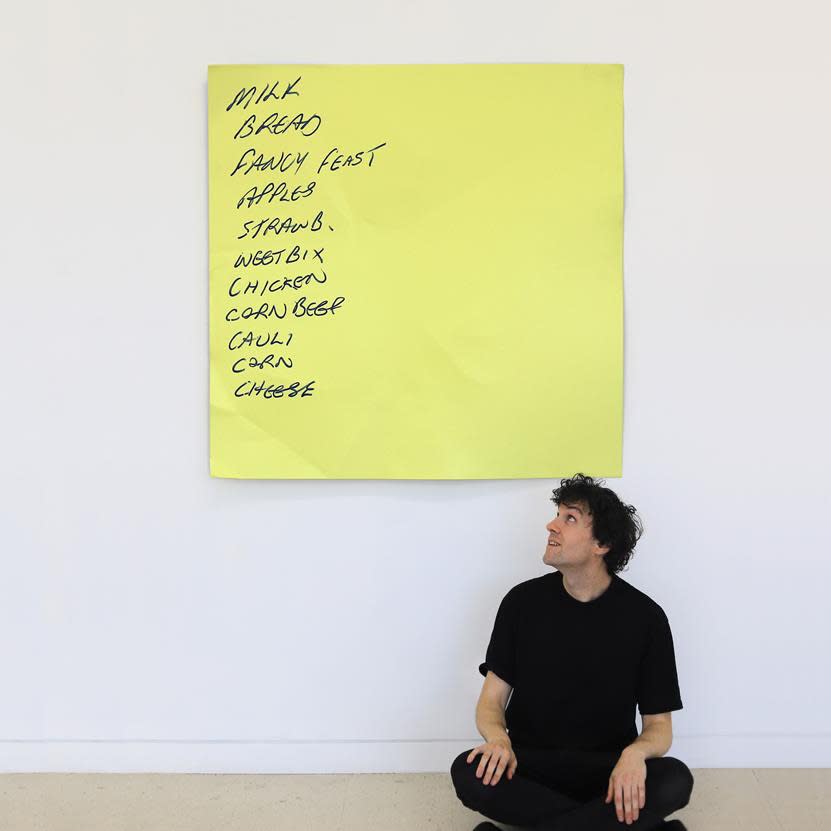 MILK
BREAD
FANCY FEAST
APPLES
STRAWB.
WEETBIX
CHICKEN
CORN BEEF
CAULI
CORN
CHEESE